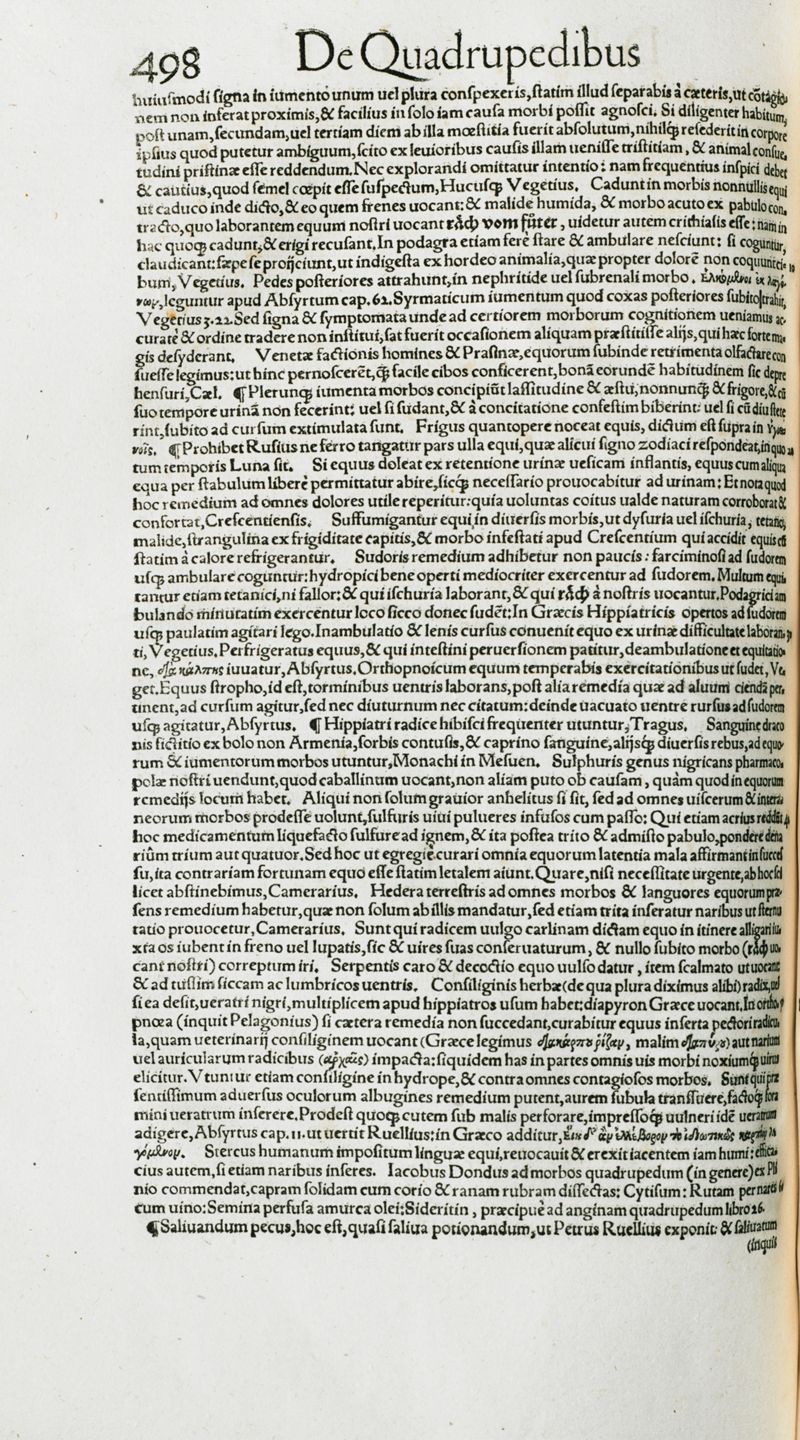 498 De Quadrupedibus
huiusmodi signa in iumento unum uel plura conspexeris, statim illud separabis à cæteris, ut cōtagio
nem non inferat proximis, & facilius in solo iam causa morbi possit agnosci. Si diligenter habitum,
post unam, secundam, uel tertiam diem ab illa mœstitia fuerit absolutum, nihilq́; resederit in corpore
ipsius quod putetur ambiguum, scito ex leuioribus causis illam uenisse tristitiam, & animal consue
tudini pristinæ esse reddendum. Nec explorandi omittatur intentio: nam frequentius inspici debet
& cautius, quod semel cœpit esse suspectum, Hucusq; Vegetius. Cadunt in morbis nonnullis equi
ut caduco inde dicto, & eo quem frenes uocant: & malide humida, & morbo acuto ex pabulo con,
tracto, quo laborantem equum nostri uocant råch vom fůter, uidetur autem crithiasis esse: nam in
hac quoq; cadunt, & erigi recusant. In podagra etiam ferè stare & ambulare nesciunt: si coguntur,
claudicant: sæpe se proijciunt, ut indigesta ex hordeo animalia, quæ propter dolorē non coquunt ci-
bum, Vegetius. Pedes posteriores attrahunt, in nephritide uel subrenali morbo.
leguntur apud Absyrtum cap. 62. Syrmaticum iumentum quod coxas posteriores subito trahit,
Vegetius 3.22. Sed signa & symptomata unde ad certiorem morborum cognitionem ueniamus ac-
curatè & ordine tradere non institui, sat fuerit occasionem aliquam præstitisse alijs, qui hæc forte ma-
gis desyderant. Venetæ factionis homines & Prasinæ, equorum subinde retrimenta olfactare con
sueße legimus: ut hinc pernoscerēt, q̃ facile cibos conficerent, bonā eorundē habitudinem sic depre
hensuri, Cæl. ¶ Plerunq; iumenta morbos concipiūt lassitudine & æstu, nonnunq̃ & frigore, & cū
suo tempore urinā non fecerint: uel si sudant, & à concitatione confestim biberint: uel si cū diu stete
rint, subito ad cursum extimulata sunt. Frigus quantopere noceat equis, dictum est supra in
¶ Prohibet Rusius ne ferro tangatur pars ulla equi, quæ alicui signo zodiaci respondeat, in quo
tum temporis Luna sit. Si equus doleat ex retentione urinæ uesicam inflantis, equus cum aliqua
equa per stabulum liberè permittatur abire, sicq; necessario prouocabitur ad urinam: Et nota quod
hoc remedium ad omnes dolores utile reperitur: quia uoluntas coitus ualde naturam corroborat &
confortat, Crescentiensis. Suffumigantur equi in diuersis morbis, ut dysuria uel ischuria, tetano,
malide, strangulina ex frigiditate capitis, & morbo infestati apud Crescentium qui accidit equis cū
statim à calore refrigerantur. Sudoris remedium adhibetur non paucis: farciminosi ad sudorem
usq; ambulare coguntur: hydropici bene operti mediocriter exercentur ad sudorem. Multum equi
tantur etiam tetanici, ni fallor: & qui ischuria laborant, & qui råch à nostris uocantur. Podagrici am
bulando minutatim exercentur loco sicco donec sudēt: In Græcis Hippiatricis opertos ad sudorem
usq; paulatim agitari lego. Inambulatio & lenis cursus conuenit equo ex urinæ difficultate laboran-
ti, Vegetius. Perfrigeratus equus, & qui intestini peruersionem patitur, deambulatione et equitatio
ne, iuuatur, Absyrtus. Orthopnoicum equum temperabis exercitationibus ut sudet, Ve-
get. Equus stropho, id est, torminibus uentris laborans, post alia remedia quæ ad aluum ciendā per-
tinent, ad cursum agitur, sed nec diuturnum nec citatum: deinde uacuato uentre rursus ad sudorem
usq; agitatur, Absyrtus. ¶ Hippiatri radice hibisci frequenter utuntur, Tragus. Sanguine draco
nis fictitio ex bolo non Armenia, sorbis contusis, & caprino sanguine, alijsq; diuersis rebus, ad equo-
rum & iumentorum morbos utuntur, Monachi in Mesuen. Sulphuris genus nigricans pharmaco-
polæ nostri uendunt, quod caballinum uocant, non aliam puto ob causam, quàm quod in equorum
remedijs locum habet. Aliqui non solum grauior anhelitus si sit, sed ad omnes uiscerum & intera
neorum morbos prodesse uolunt, sulfuris uiui pulueres infusos cum passo: Qui etiam acrius reddūt
hoc medicamentum liquefacto sulfure ad ignem, & ita postea trito & admisto pabulo, pondere dena
riûm trium aut quatuor. Sed hoc ut egregiè curari omnia equorum latentia mala affirmant in succes
su, ita contrariam fortunam equo esse statim letalem aiunt. Quare, nisi necessitate urgente, ab hoc sci
licet abstinebimus, Camerarius. Hedera terrestris ad omnes morbos & languores equorum præ-
sens remedium habetur, quæ non solum ab illis mandatur, sed etiam trita inseratur naribus ut sternu
tatio prouocetur, Camerarius. Sunt qui radicem uulgo carlinam dictam equo in itinere alligari iu-
xta os iubent in freno uel lupatis, sic & uires suas conseruaturum, & nullo subito morbo (råch uo-
cant nostri) correptum iri. Serpentis caro & decoctio equo uulso datur, item scalmato ut uocant
& ad tussim siccam ac lumbricos uentris. Consiliginis herbæ (de qua plura diximus alibi) radix, uel
si ea desit, ueratri nigri, multiplicem apud hippiatros usum habet: diapyron Græce uocant. In ortho-
pnœa (inquit Pelagonius) si cætera remedia non succedant, curabitur equus inserta pectori radicu
la, quam ueterinarij consiliginem uocant (Græce legimus malim) aut narium
uel auricularum radicibus impacta: siquidem has in partes omnis uis morbi noxiumq; uirus
elicitur. Vtuntur etiam consiligine in hydrope, & contra omnes contagiosos morbos. Sunt qui præ
sentissimum aduersus oculorum albugines remedium putent, aurem subula transfuere, factoq; fora
mini ueratrum inserere. Prodest quoq; cutem sub malis perforare, impressoq; uulneri idē ueratrum
adigere, Absyrtus cap. 11. ut uertit Ruellius: in Græco additur,
Stercus humanum impositum linguæ equi, reuocauit & erexit iacentem iam humi: effica-
cius autem, si etiam naribus inseres. Iacobus Dondus ad morbos quadrupedum (in genere) ex Pli
nio commendat, capram solidam cum corio & ranam rubram dissectas: Cytisum: Rutam per nares
cum uino: Semina perfusa amurca olei: Sideritin, præcipuè ad anginam quadrupedum libro 26.
¶ Saliuandum pecus, hoc est, quasi saliua potionandum, ut Petrus Ruellius exponit: & saliuatum
(inquit